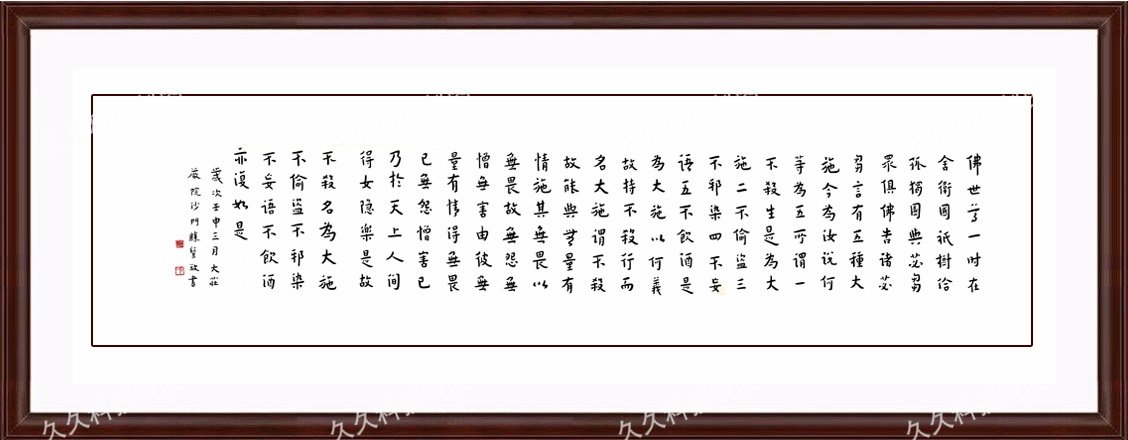 佛世尊一时在
舍衛國祇樹給
孤獨園與苾芻
眾俱佛告諸苾
芻言有五種大
施今為汝說何
等為五所謂一
不殺生是為大
施二不偷盜三
不邪染四不妄
語五不飲酒是
為大施以何義
故持不殺行而
名大施謂不殺
故能與無量有
情施其無畏以
無畏故無怨無
憎無害由彼無
量有情得無畏
已無怨憎害已
乃於天上人间
得安隐樂是故
不殺名為大施
不偷盜不邪染
不妄语不飲酒
亦復如是
歲次壬申三月大莊
嚴院沙門勝髻敬書
久久科
久久科
久久科
久久科